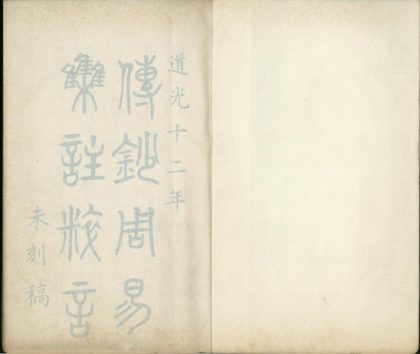 道光十二年
傳鈔周易
集註粹言
未刻稿